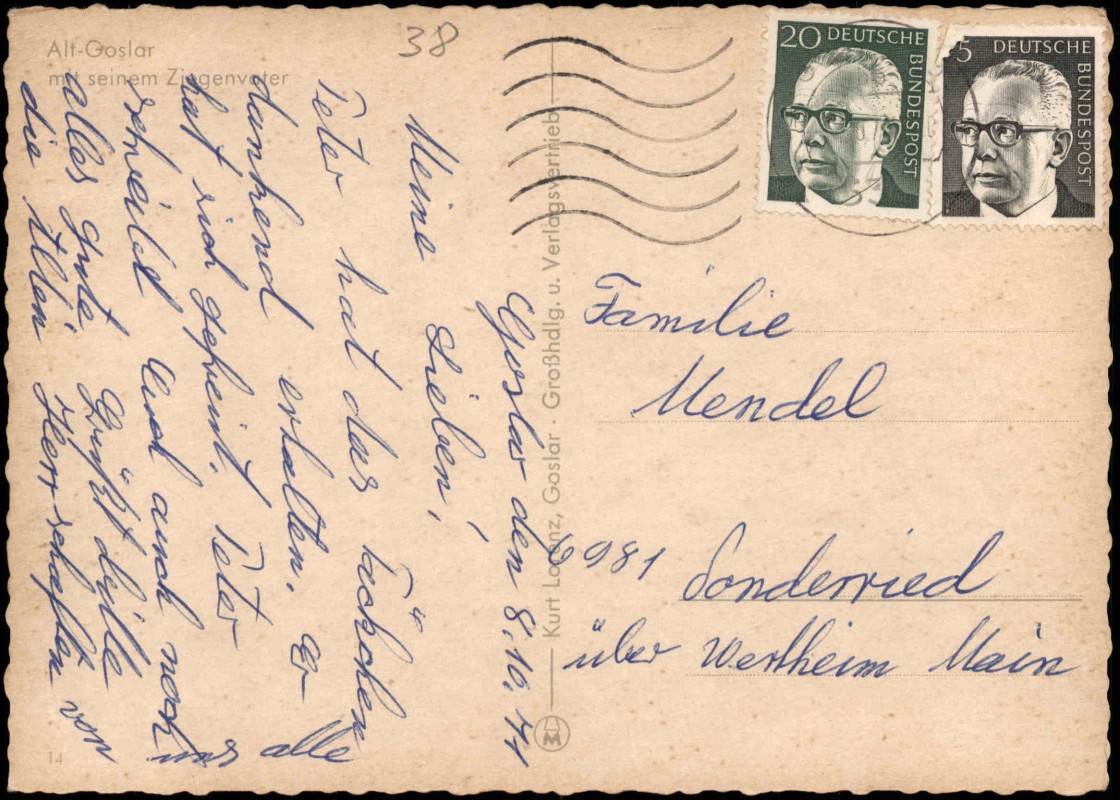 Alt-Goslar
mit seinem Ziegenvater
38
20 DEUTSCHE
BUNDESPOST
5 DEUTSCHE
BUNDESPOST
Goslar den 8.10.71
Meine Lieben!
Peter hat das Päckchen
dankend erhalten. Er
hat sich gefreut. Peter
schreibt Euch auch noch
alles gute. Grüßt bitte
die Herrschaften von
uns alle
Kurt Lorenz, Goslar · Großhdlg. u. Verlagsvertrieb
Familie
Mendel
6981 Sonderried
über Wertheim Main
14
M